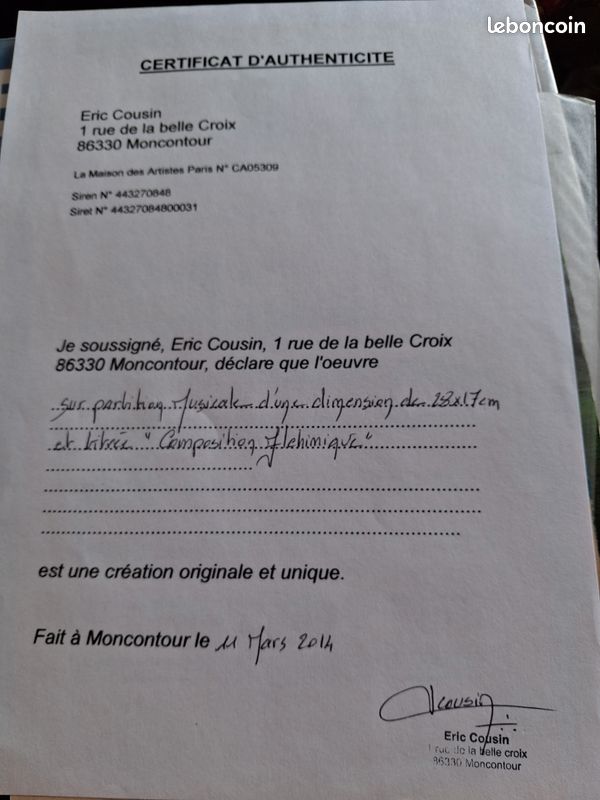 leboncoin
CERTIFICAT D'AUTHENTICITE
Eric Cousin
1 rue de la belle Croix
86330 Moncontour
La Maison des Artistes Paris N° CA05309
Siren N° 443270848
Siret N° 44327084800031
Je soussigné, Eric Cousin, 1 rue de la belle Croix
86330 Moncontour, déclare que l'oeuvre
sur partition Musicale d'une dimension de 28x17cm
et titrée "Composition Alchimique"
est une création originale et unique.
Fait à Moncontour le 11 Mars 2014
Cousin
Eric Cousin
1 rue de la belle croix
86330 Moncontour